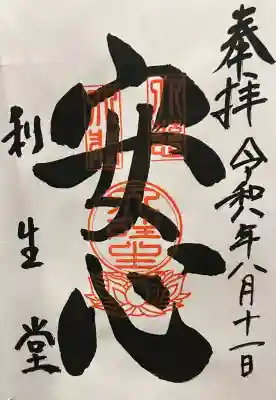 奉拝 令和八年八月十一日
安心
利生堂